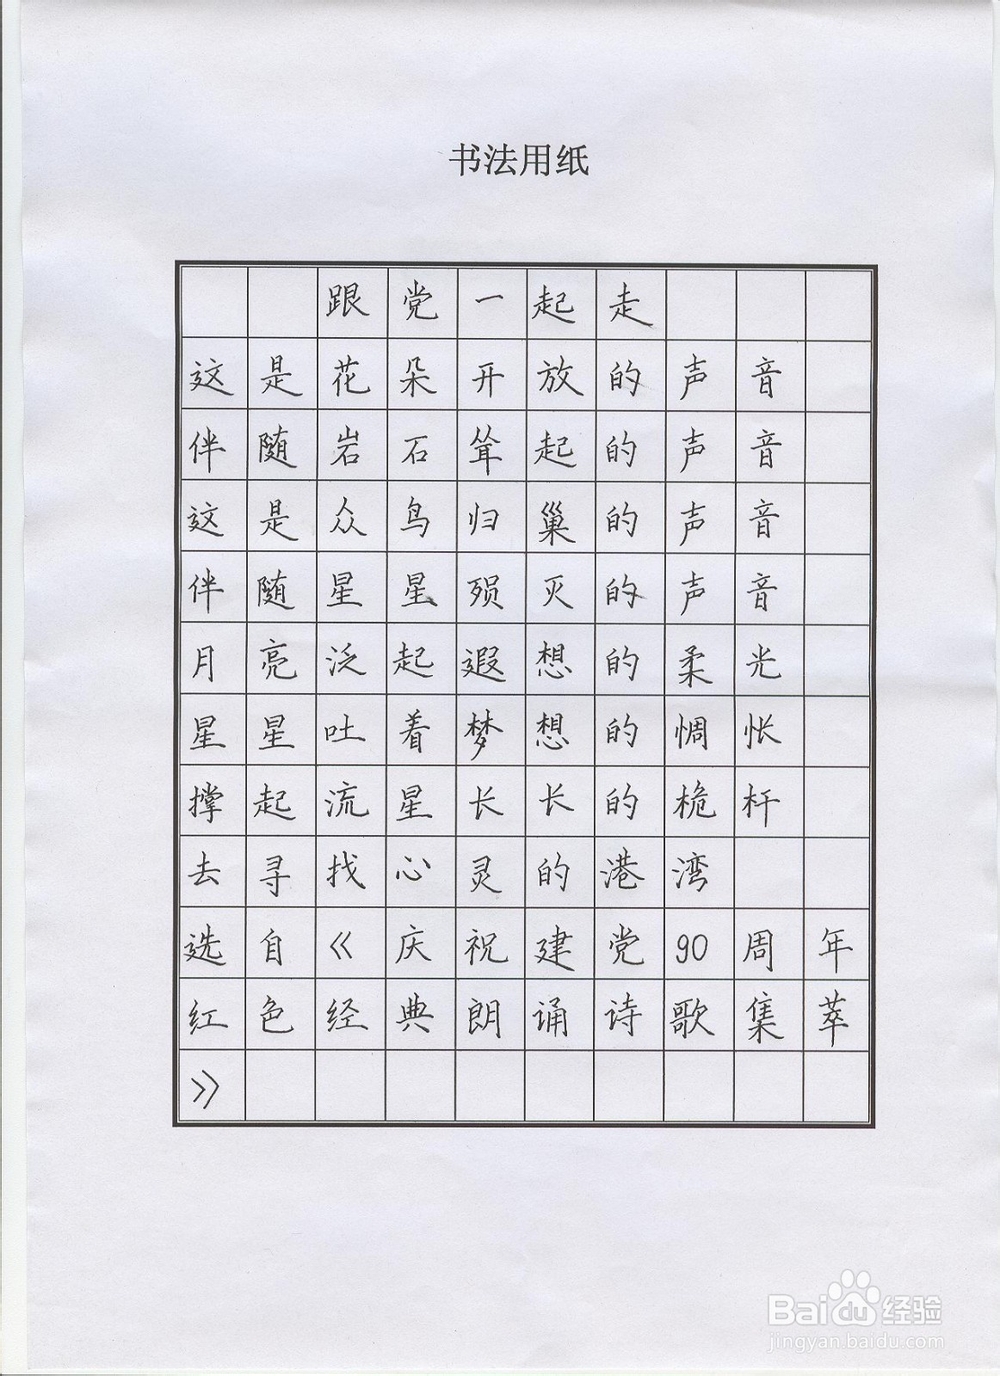 书法用纸
跟党一起走
这是花朵开放的声音
伴随岩石耸起的声音
这是众鸟归巢的声音
伴随星星殒灭的声音
月亮泛起遐想的柔光
星星吐着梦想的惆怅
撑起流星长长的桅杆
去寻找心灵的港湾
选自《庆祝建党90周年
红色经典朗诵诗歌集萃
》
Baidu经验
jingyan.baidu.com